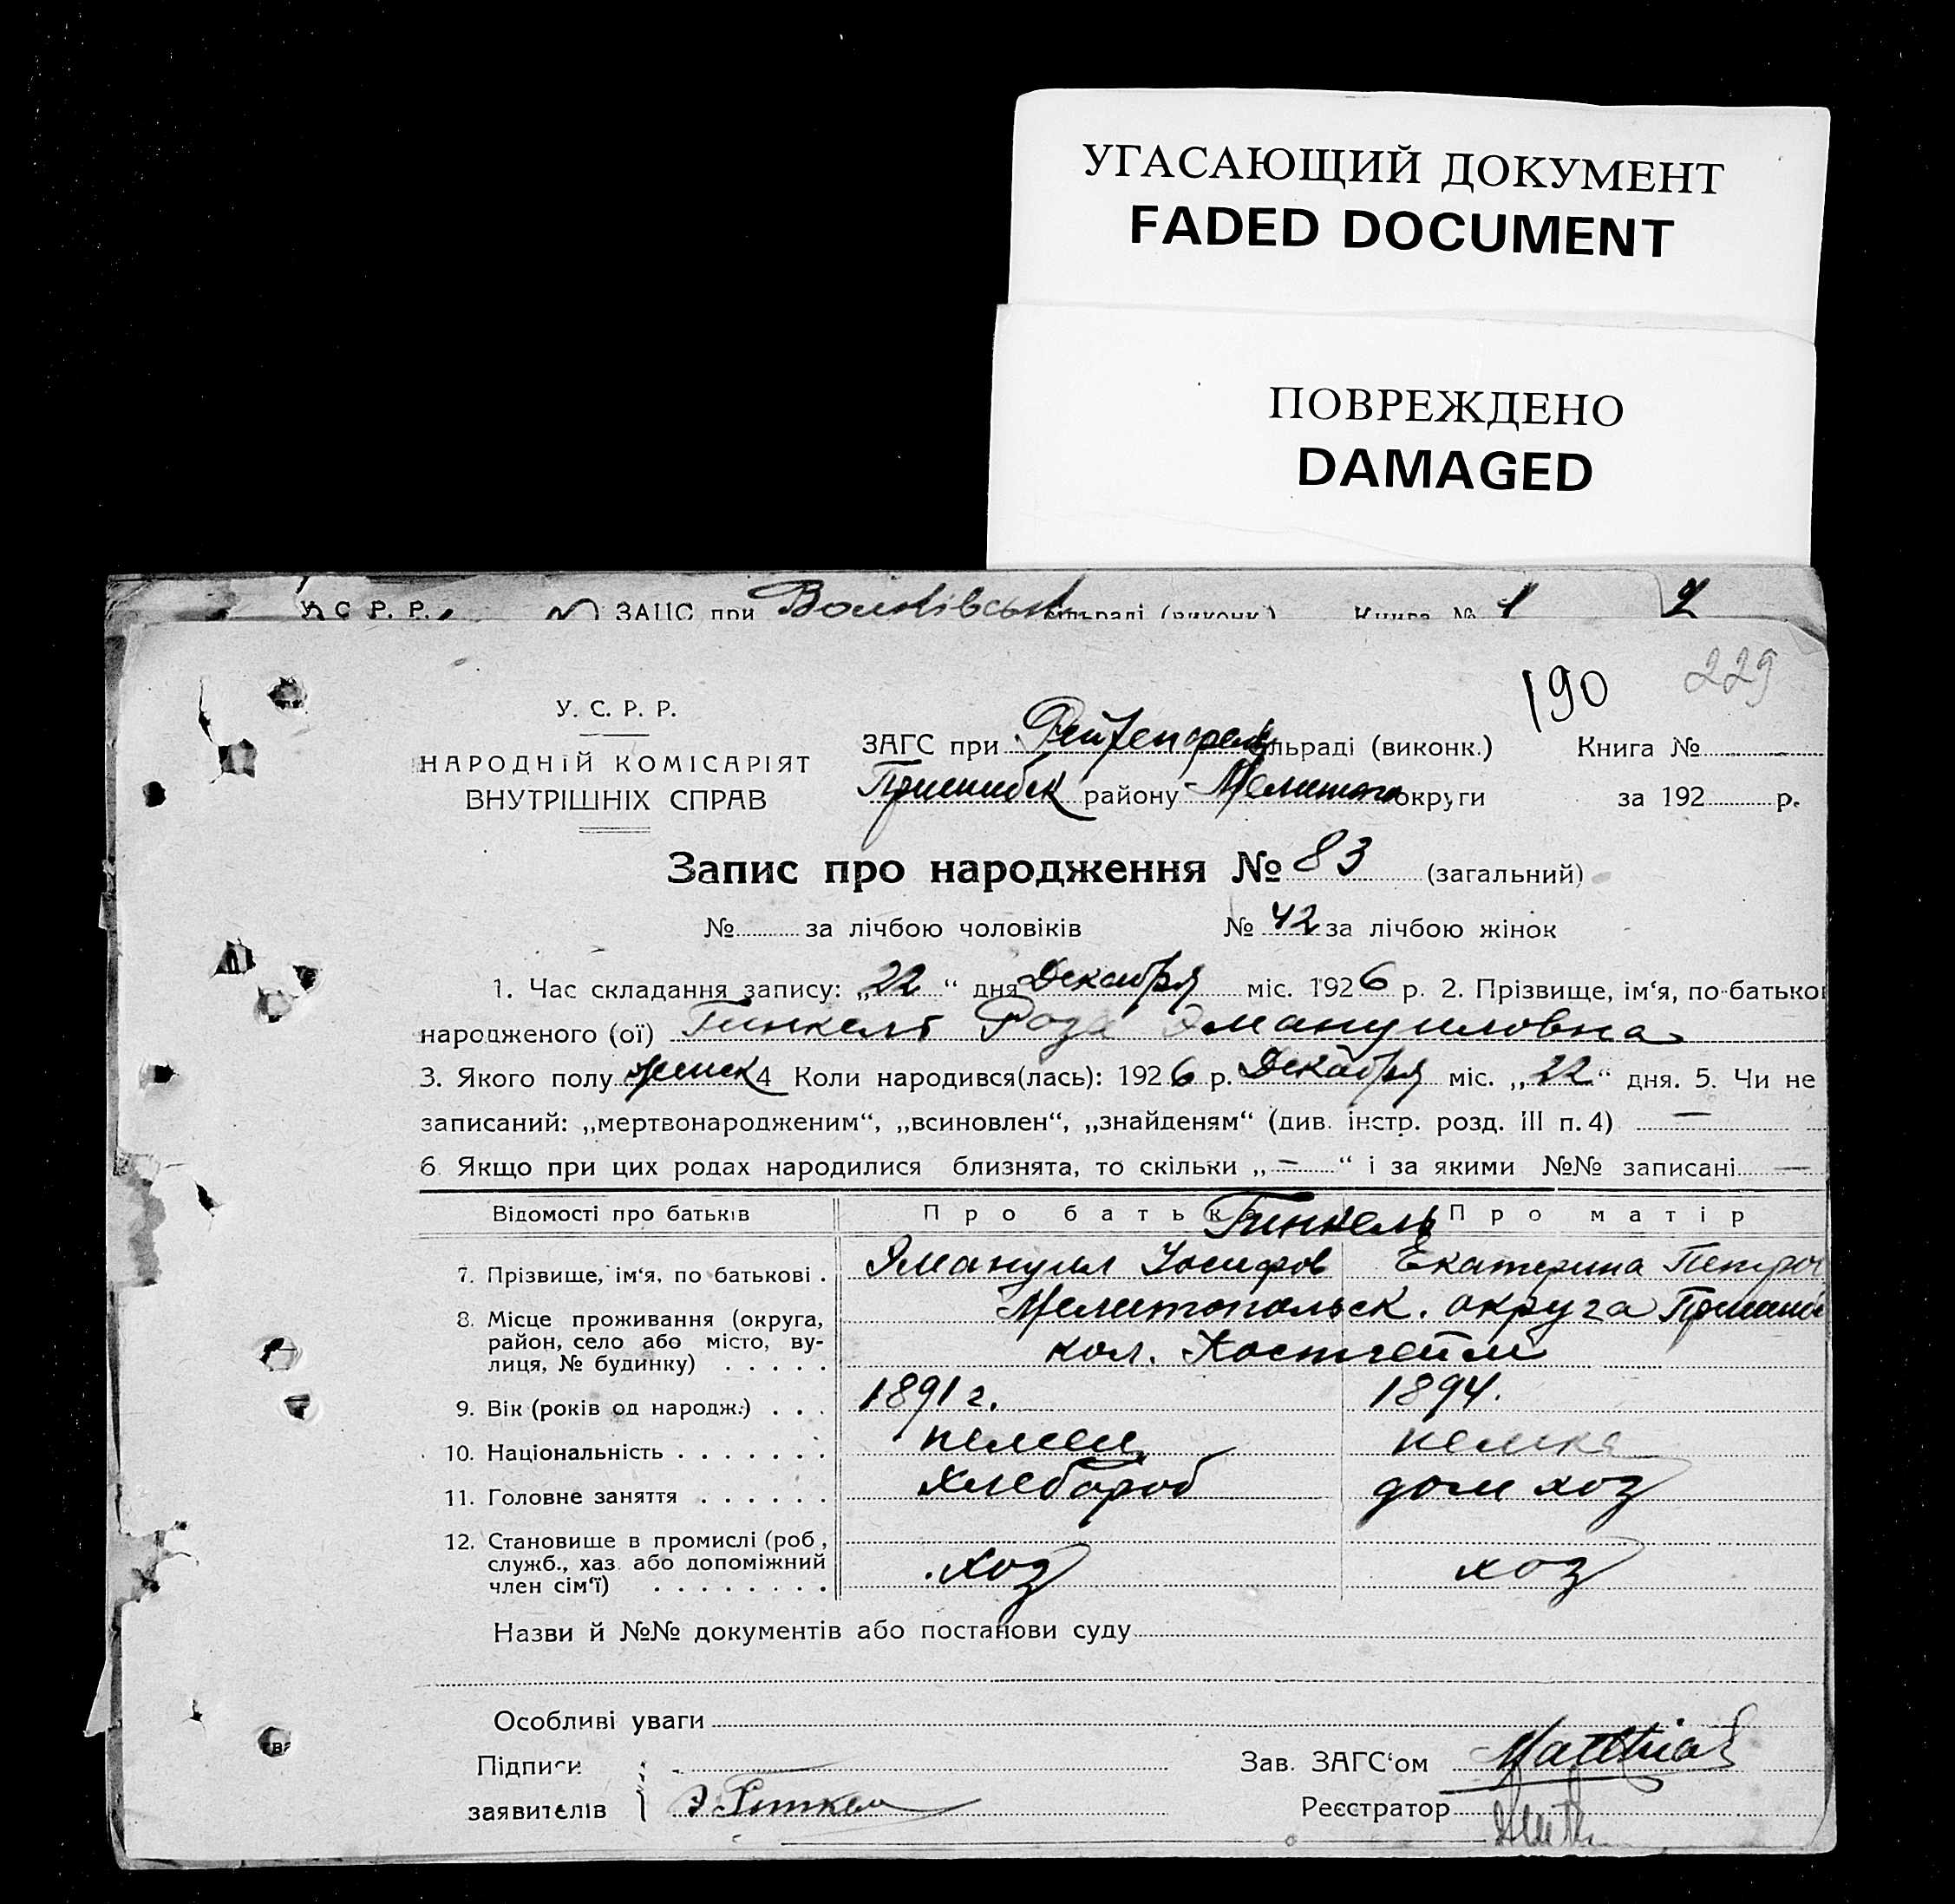 УГАСАЮЩИЙ ДОКУМЕНТ
FADED DOCUMENT
ПОВРЕЖДЕНО
DAMAGED
У С Р. Р. ЗАГС при Вол ільраді (виконк.) Книга № 1 2
190 229
У. С. Р. Р.
НАРОДНІЙ КОМІСАРІЯТ
ВНУТРІШНІХ СПРАВ
ЗАГС при Рейхенфель ільраді (виконк.) Книга №
Пришибск району Мелитоп округи за 192 р.
Запис про народження № 83 (загальний)
№ за лічбою чоловіків № 42 за лічбою жінок
1. Час складання запису: „22“ дня Декабря міс. 1926 р. 2. Прізвище, ім‘я, по-батькові
народженого (ої) Гинкель Роза Эмануиловна
3. Якого полу женск 4 Коли народився(лась): 1926 р. Декабря міс. „22“ дня. 5. Чи не
записаний: „мертвонародженим“, „всиновлен“, „знайденям“ (див. інстр. розд. III п. 4) —
6 Якщо при цих родах народилися близнята, то скільки „—“ і за якими №№ записані —
Відомості про батьків Про батька Гинкель Про матір
7. Прізвище, ім‘я, по батькові . Эмануил Иосифов Екатерина Петров
8. Місце проживання (округа, Мелитопольск. округа
район, село або місто, ву-
лиця, № будинку) . . . . . кол. Костгейм
9. Вік (років од народж.) . . . 1891 г. 1894.
10. Національність . . . . . . . немец немка
11. Головне заняття . . . . . . хлебороб дом хоз
12. Становище в промислі (роб,
служб., хаз. або допоміжний
член сім‘ї) . . . . . . . . хоз хоз
Назви й №№ документів або постанови суду
Особливі уваги
Підписи
заявителів
Зав. ЗАГС‘ом Matthias
Реєстратор